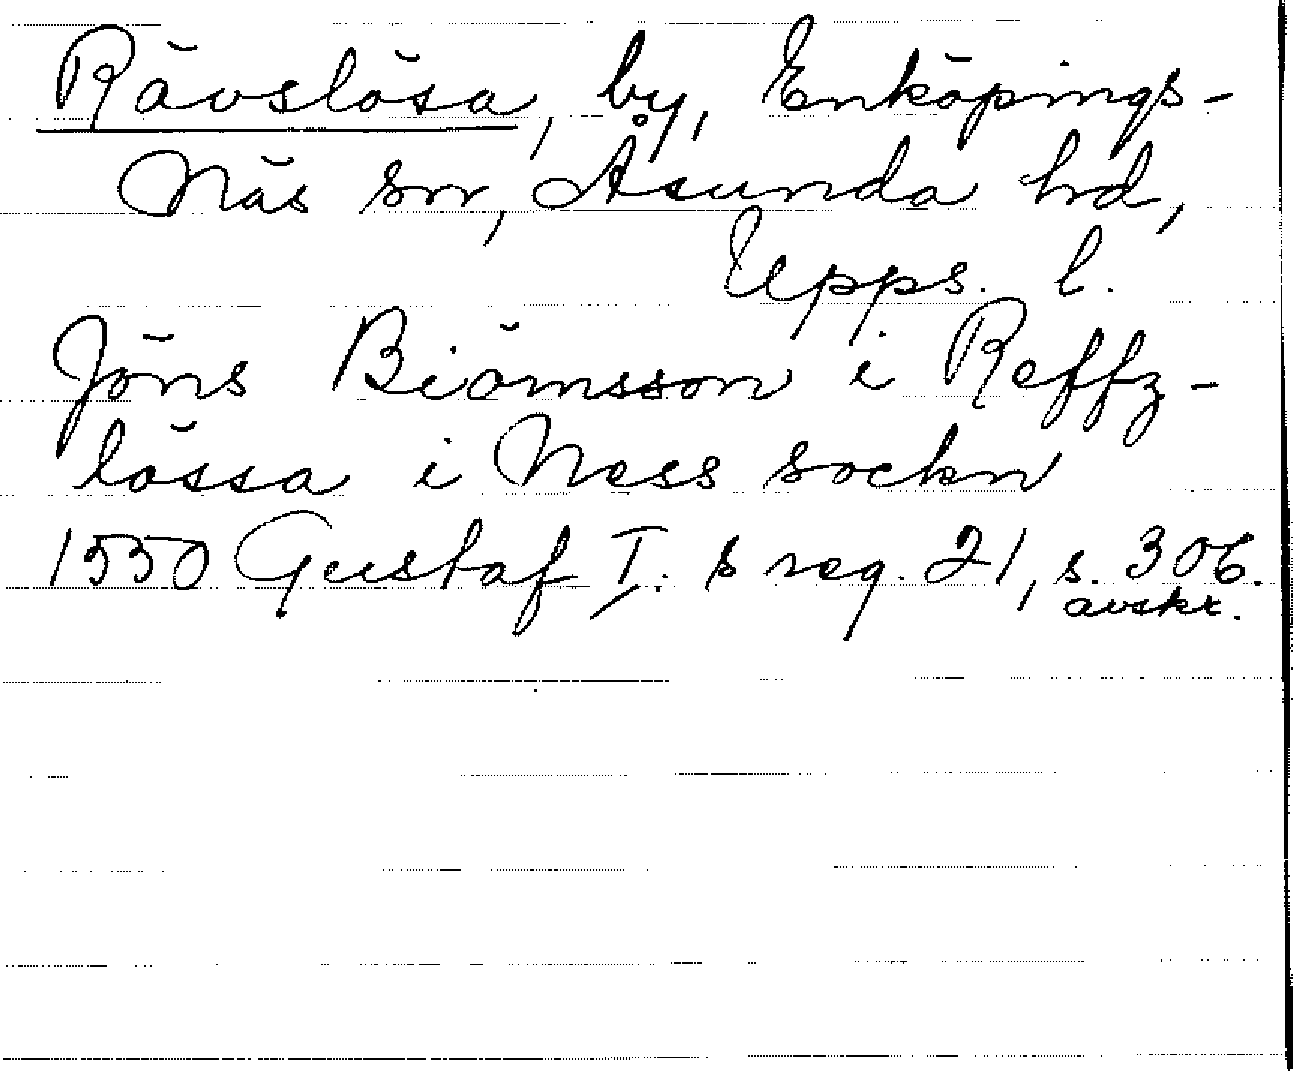 Rävslösa, by, Enköpings-
Näs sn, Åsunda hd,
Upps. l.
Jöns Biörnsson i Reffz-
lössa i Ness sockn
1550 Gustaf I:s reg. 21, s. 306.
avskr.